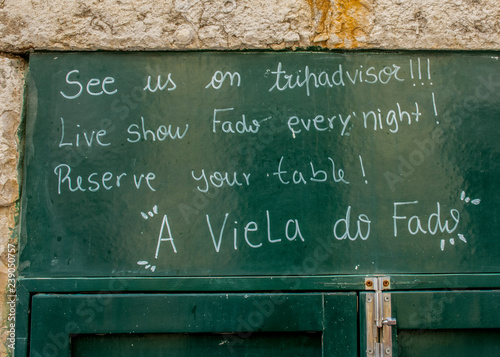 See us on tripadvisor!!!
Live show Fado every night!
Reserve your table!
"A Viela do Fado"
239050757